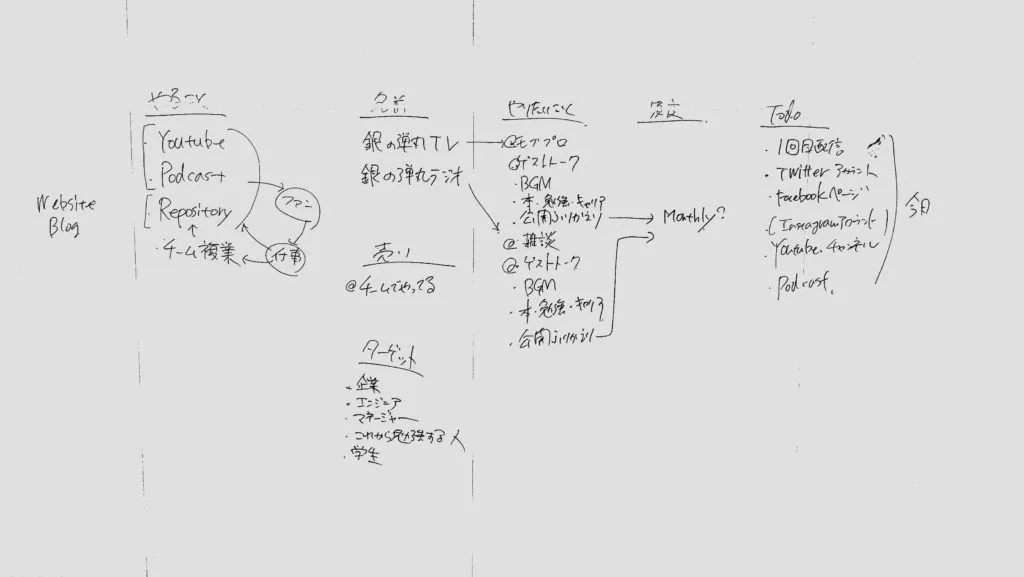 Website
Blog
やること
Youtube
Podcast
Repository
・チーム複業
ファン
仕事
名前
銀の弾丸TV
銀の弾丸ラジオ
売り
@チームでやってる
ターゲット
・企業
・エンジニア
・マネージャー
・これから勉強する人
・学生
やりたいこと
@モブプロ
@ゲストトーク
・BGM
・本・勉強・キャリア
・公開ふりかえり
@雑談
@ゲストトーク
・BGM
・本・勉強・キャリア
・公開ふりかえり
Monthly?
Todo
・1回目配信
・Twitterアカウント
・Facebookページ
・(Instagramアカウント)
・Youtubeチャンネル
・Podcast
今日